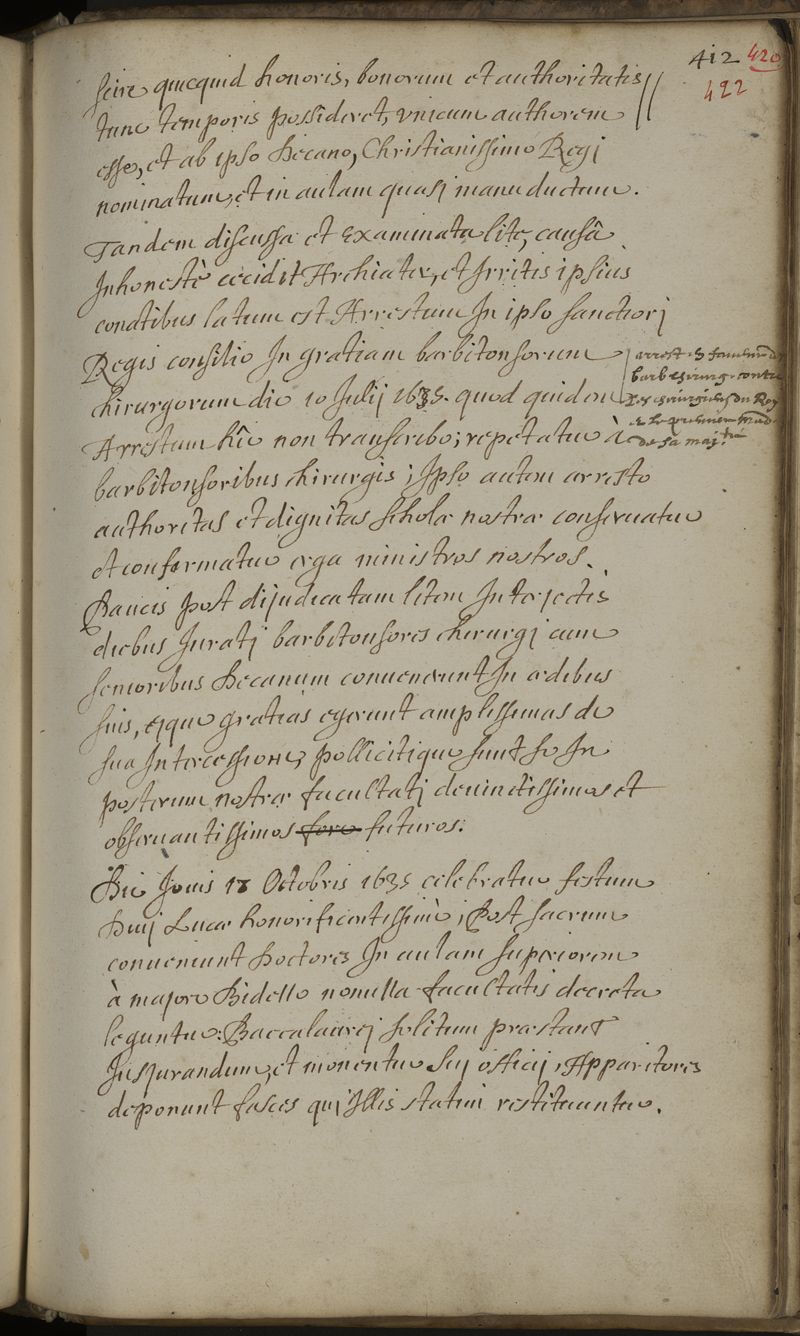 412 420
422
scire quicquid honoris, bonorum et authoritatis
tunc temporis possideret, vnicum authorem
esse, et ab ipso Decano, Christianissimo Regj
nominatum, et in aulam quasj manuductum.
Tandem discussa et Examinata lite, causâ
Inhonestè cecidit Archiater, et Irritis ipsius
conatibus latum est Arrestum In ipso sanctiorj
Regis consilio In gratiam barbitonsorum
chirurgorum die 10 Julij 1635. quod quidem
Arrestum hîc non transcribo; repetatur à
barbitonsoribus chirurgis; Ipso autem arresto
authoritas et dignitas scholæ nostræ conseruatur
et confirmatur erga ministros nostros.
Paucis post dijudicatam litem Interjectis
diebus Juratj barbitonsores chirurgj cum
senioribus Decanum conuenerunt In ædibus
suis, eique gratias egerunt amplissimas de
sua Intercessione, pollicitique sunt se In
posterum nostræ facultatj deuinctissimos et
obseruantissimos fore futuros.
arrest en faueur des
barb. chirurg. contre
les chirurgiens du Roy
et le premier med.
de sa maj.té
Die Jouis 18 Octobris 1635 celebratur festum
Diuj Lucæ honorificentissimè; Post sacrum
conueniunt Doctores In aulam superiorem
à majore Bidello nonnulla facultatis decreta
leguntur. Baccalaurej solitum præstant
Jusjurandum, et monentur suj officij, Apparitores
deponunt fasces quj Illis statim restituuntur.